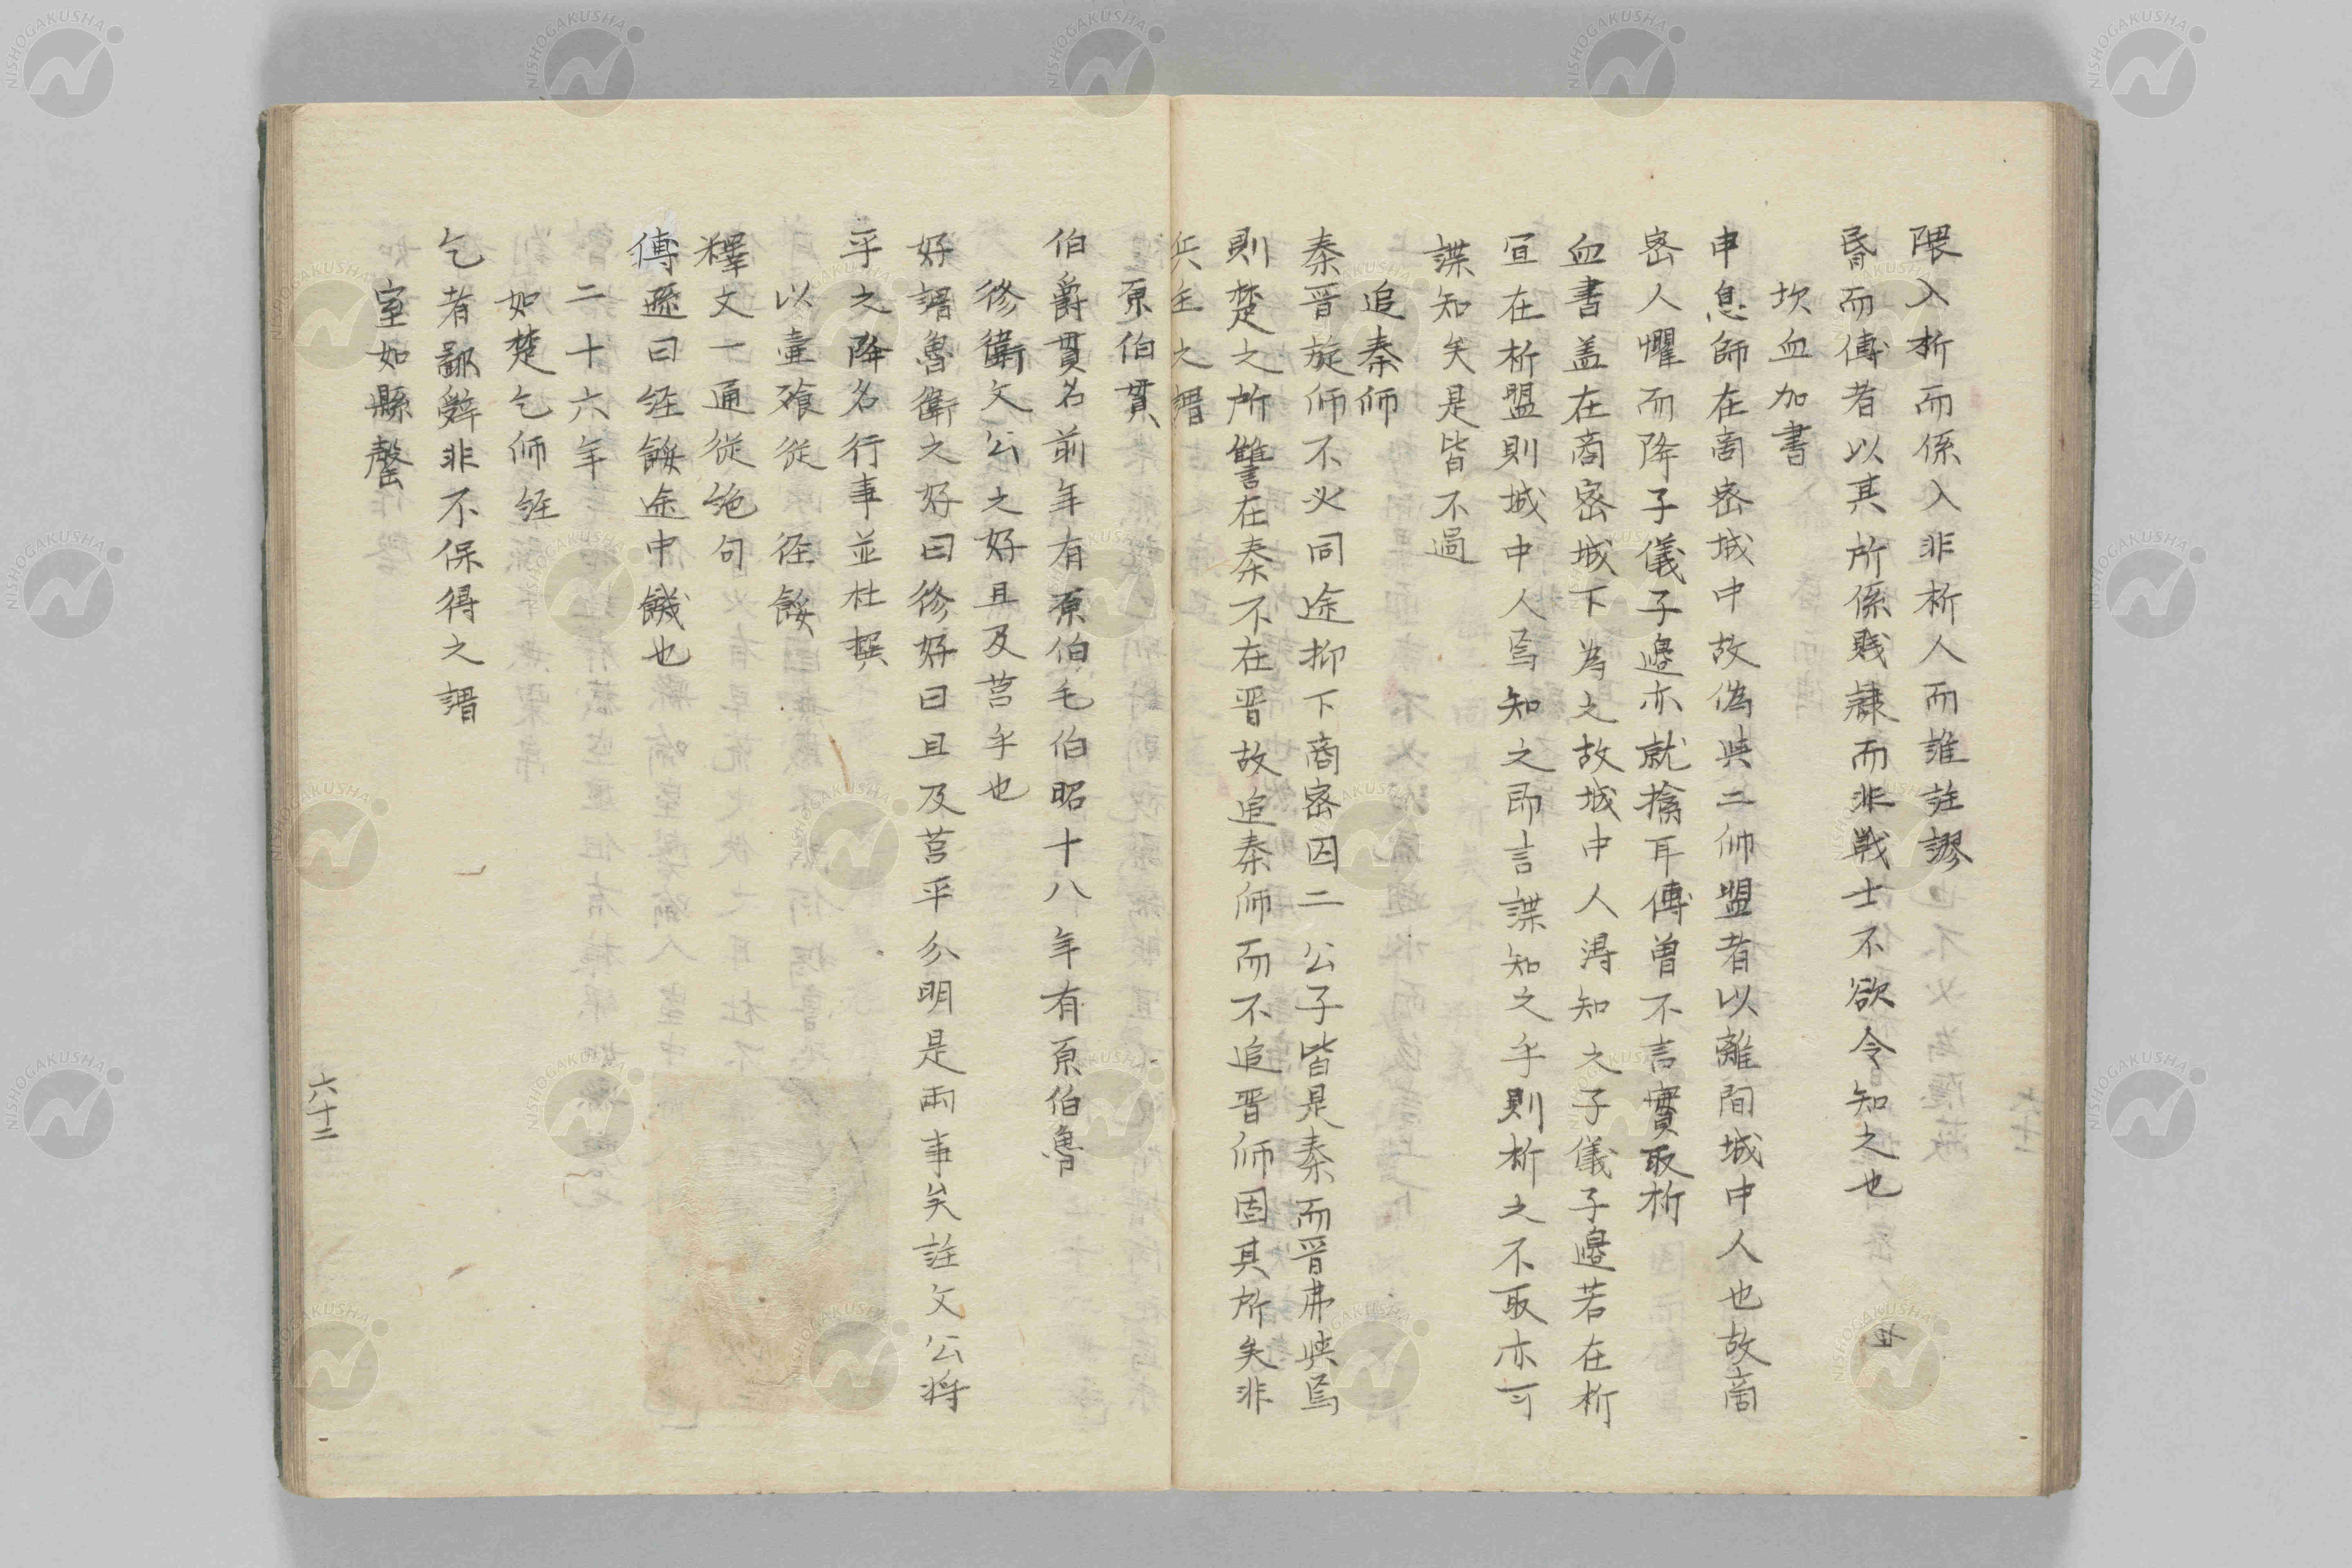 隈入析而係入非析人而誰註謬
昏而傅者以其所係賤隷而非戦士不欲令知之也
坎血加書
申息師在商密城中故偽与二師盟者以離間城中人也故商
密人懼而降子儀子邉亦就擒耳傳曽不言實取析
血書盖在商密城下為之故城中人得知之子儀子邉若在析
宜在析盟則城中人焉知之即言諜知之乎則析之不取亦可
諜知矣是皆不過
追秦師
秦晋旋師不必同途抑下商密囚二公子皆是秦而晋弗與焉
則楚之所讐在秦不在晋故追秦師而不追晋師固其所矣非
兵主之謂
原伯貫
伯爵貫名前年有原伯毛伯昭十八年有原伯魯
修衛文公之好且及莒平也
好謂魯衛之好曰修好曰且及莒平分明是兩事矣註文公将
平之降名行事並杜撰
以壷飱従 径餒
釋文一通従絶句
傅遜曰径餒途中餓也
二十六年
如楚乞師経
乞者鄙辤非不保得之謂
室如縣罄
六十二
NISHOGAKUSHA